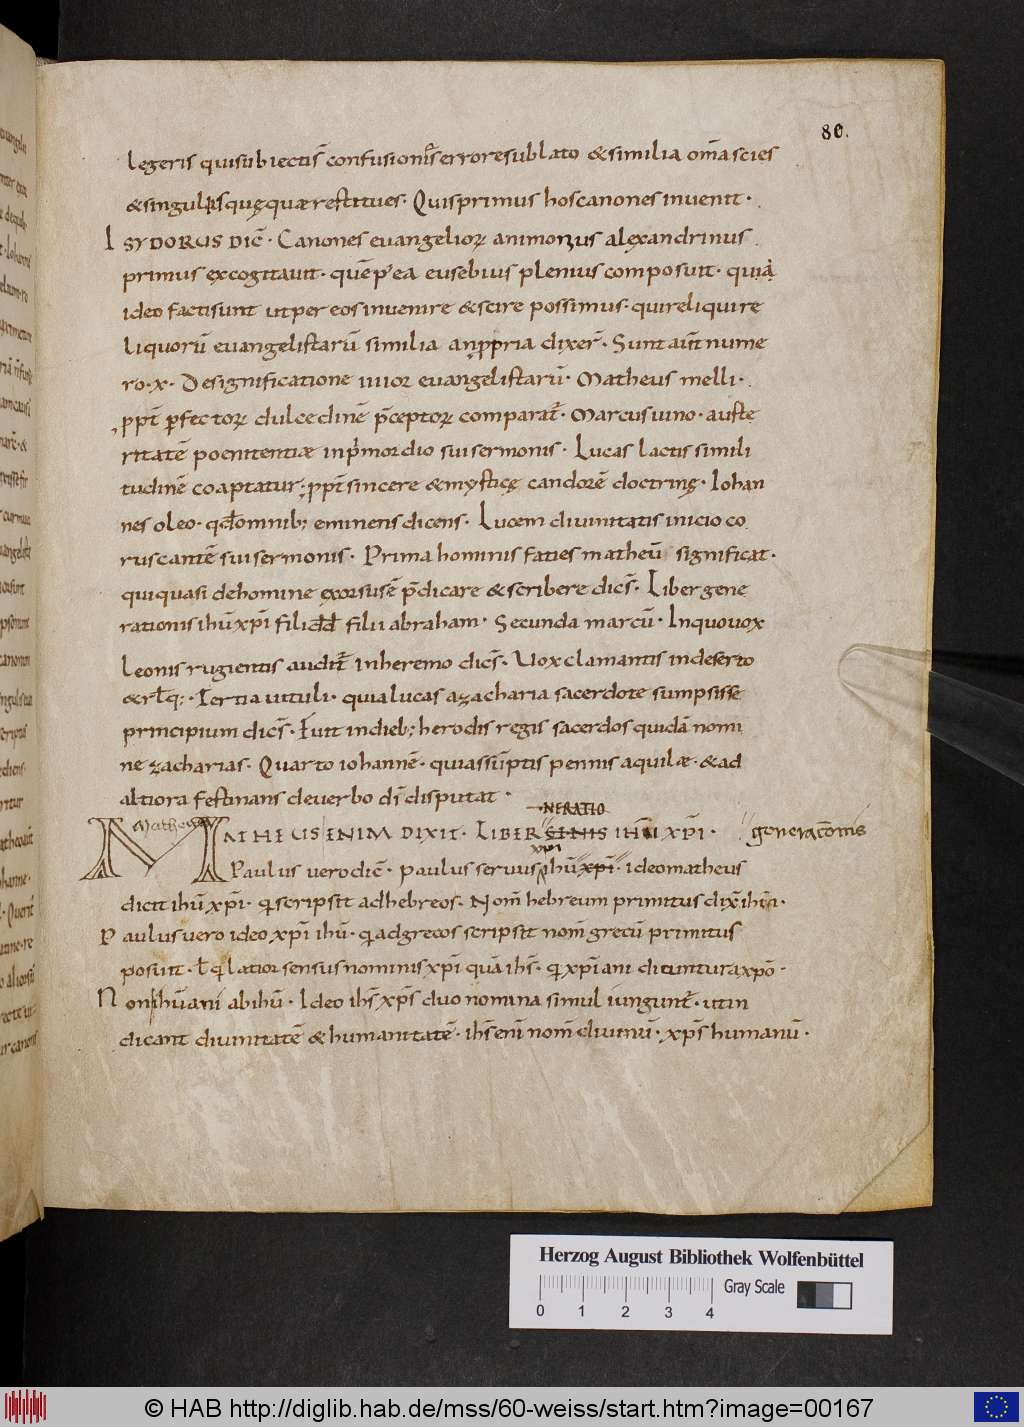 80.
legeris qui subiectis̄ confusionis errore sublato & similia om̄a scies
& singulis quęquæ restitues· Quis primus hos canones inuenit·
ISYDORUS DIC̄· Canones euangelioꝝ animonius alęxandrinus
primus excogitauit· quē p' ea eusebius plenius composuit· quia
ideo facti sunt ut per eos inuenire & scire possimus· qui reliqui re
liquorū euangelistarū similia an ꝓpria dixer̄· Sunt aūt nume
ro·x· De significatione iiiior euangelistarū· Matheus melli·
ppt̄ ꝑfectoꝝ dulcedinē p̄ceptoꝝ comparat̄· Marcus uino· austę
ritatē poenitentiæ in p'mordio sui sermonis· Lucas lactis simili
tudinē coaptatur; ꝓpt̄ sincere & mysticę candorē doctrinę· Iohan
nes oleo· qđ omnib; eminens dicens· Lucem diuinitatis inicio co
ruscantē sui sermonis· Prima hominis facies matheū significat·
qui quasi de homine exorsus ē p̄dicare & scribere dic̄s· Liber gene
rationis ihū xp̄i filii dd̄ filii abraham· Secunda marcū· In quo uox
leonis rugientis audit̄ in heremo dic̄s· Uox clamantis in deserto
& rl̄q:· Tertia uituli· quia lucas a zacharia sacerdote sumpsisse
principium dic̄s· Fuit in dieb; herodis regis sacerdos quidā nomi
ne zacharias· Quarto iohannē· qui assūptis pennis aquilæ· & ad
altiora festinans de uerbo dī disputat·
NERATIO
Matheus
MATHEUS ENIM DIXIT· LIBER GENIS IHU XP̄I· generationis
xp̄i
Paulus uero dic̄· paulus seruus ihū xp̄i· ideo matheus
dicit ihū xp̄i· q̄ scripsit ad hebreos· Nom̄ hebreum primitus dix̄ ihū·
Paulus uero ideo xp̄i ihū· q̄ ad grecos scripsit nom̄ grecū primitus
posuit· ł q̄ latior sensus nominis xp̄i quā ihs̄· q̄ xp̄iani dicuntur a xp̄o·
Non ihūani ab ihū· Ideo ihs̄ xp̄s duo nomina simul iungunt̄· ut in
dicant diuinitatē & humanitatē· ihs̄ enī nom̄ diuinū· xp̄s humanū·
Herzog August Bibliothek Wolfenbüttel
0 1 2 3 4 Gray Scale
© HAB http://diglib.hab.de/mss/60-weiss/start.htm?image=00167